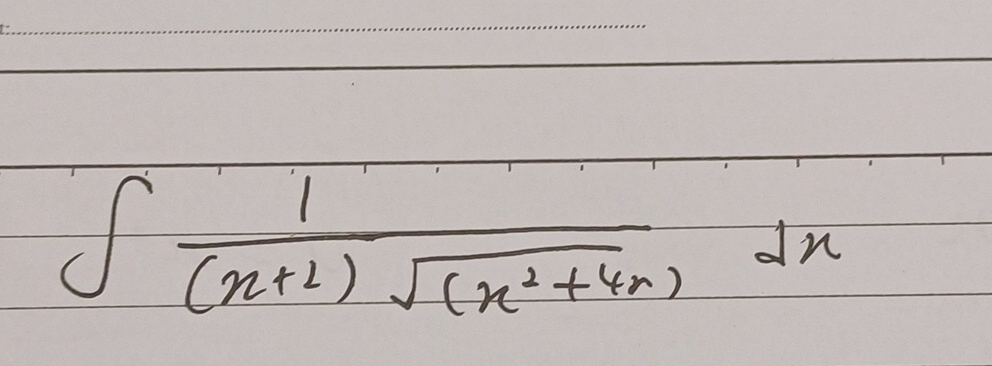 ∫ 1/((x+2) √(x²+4x)) dx